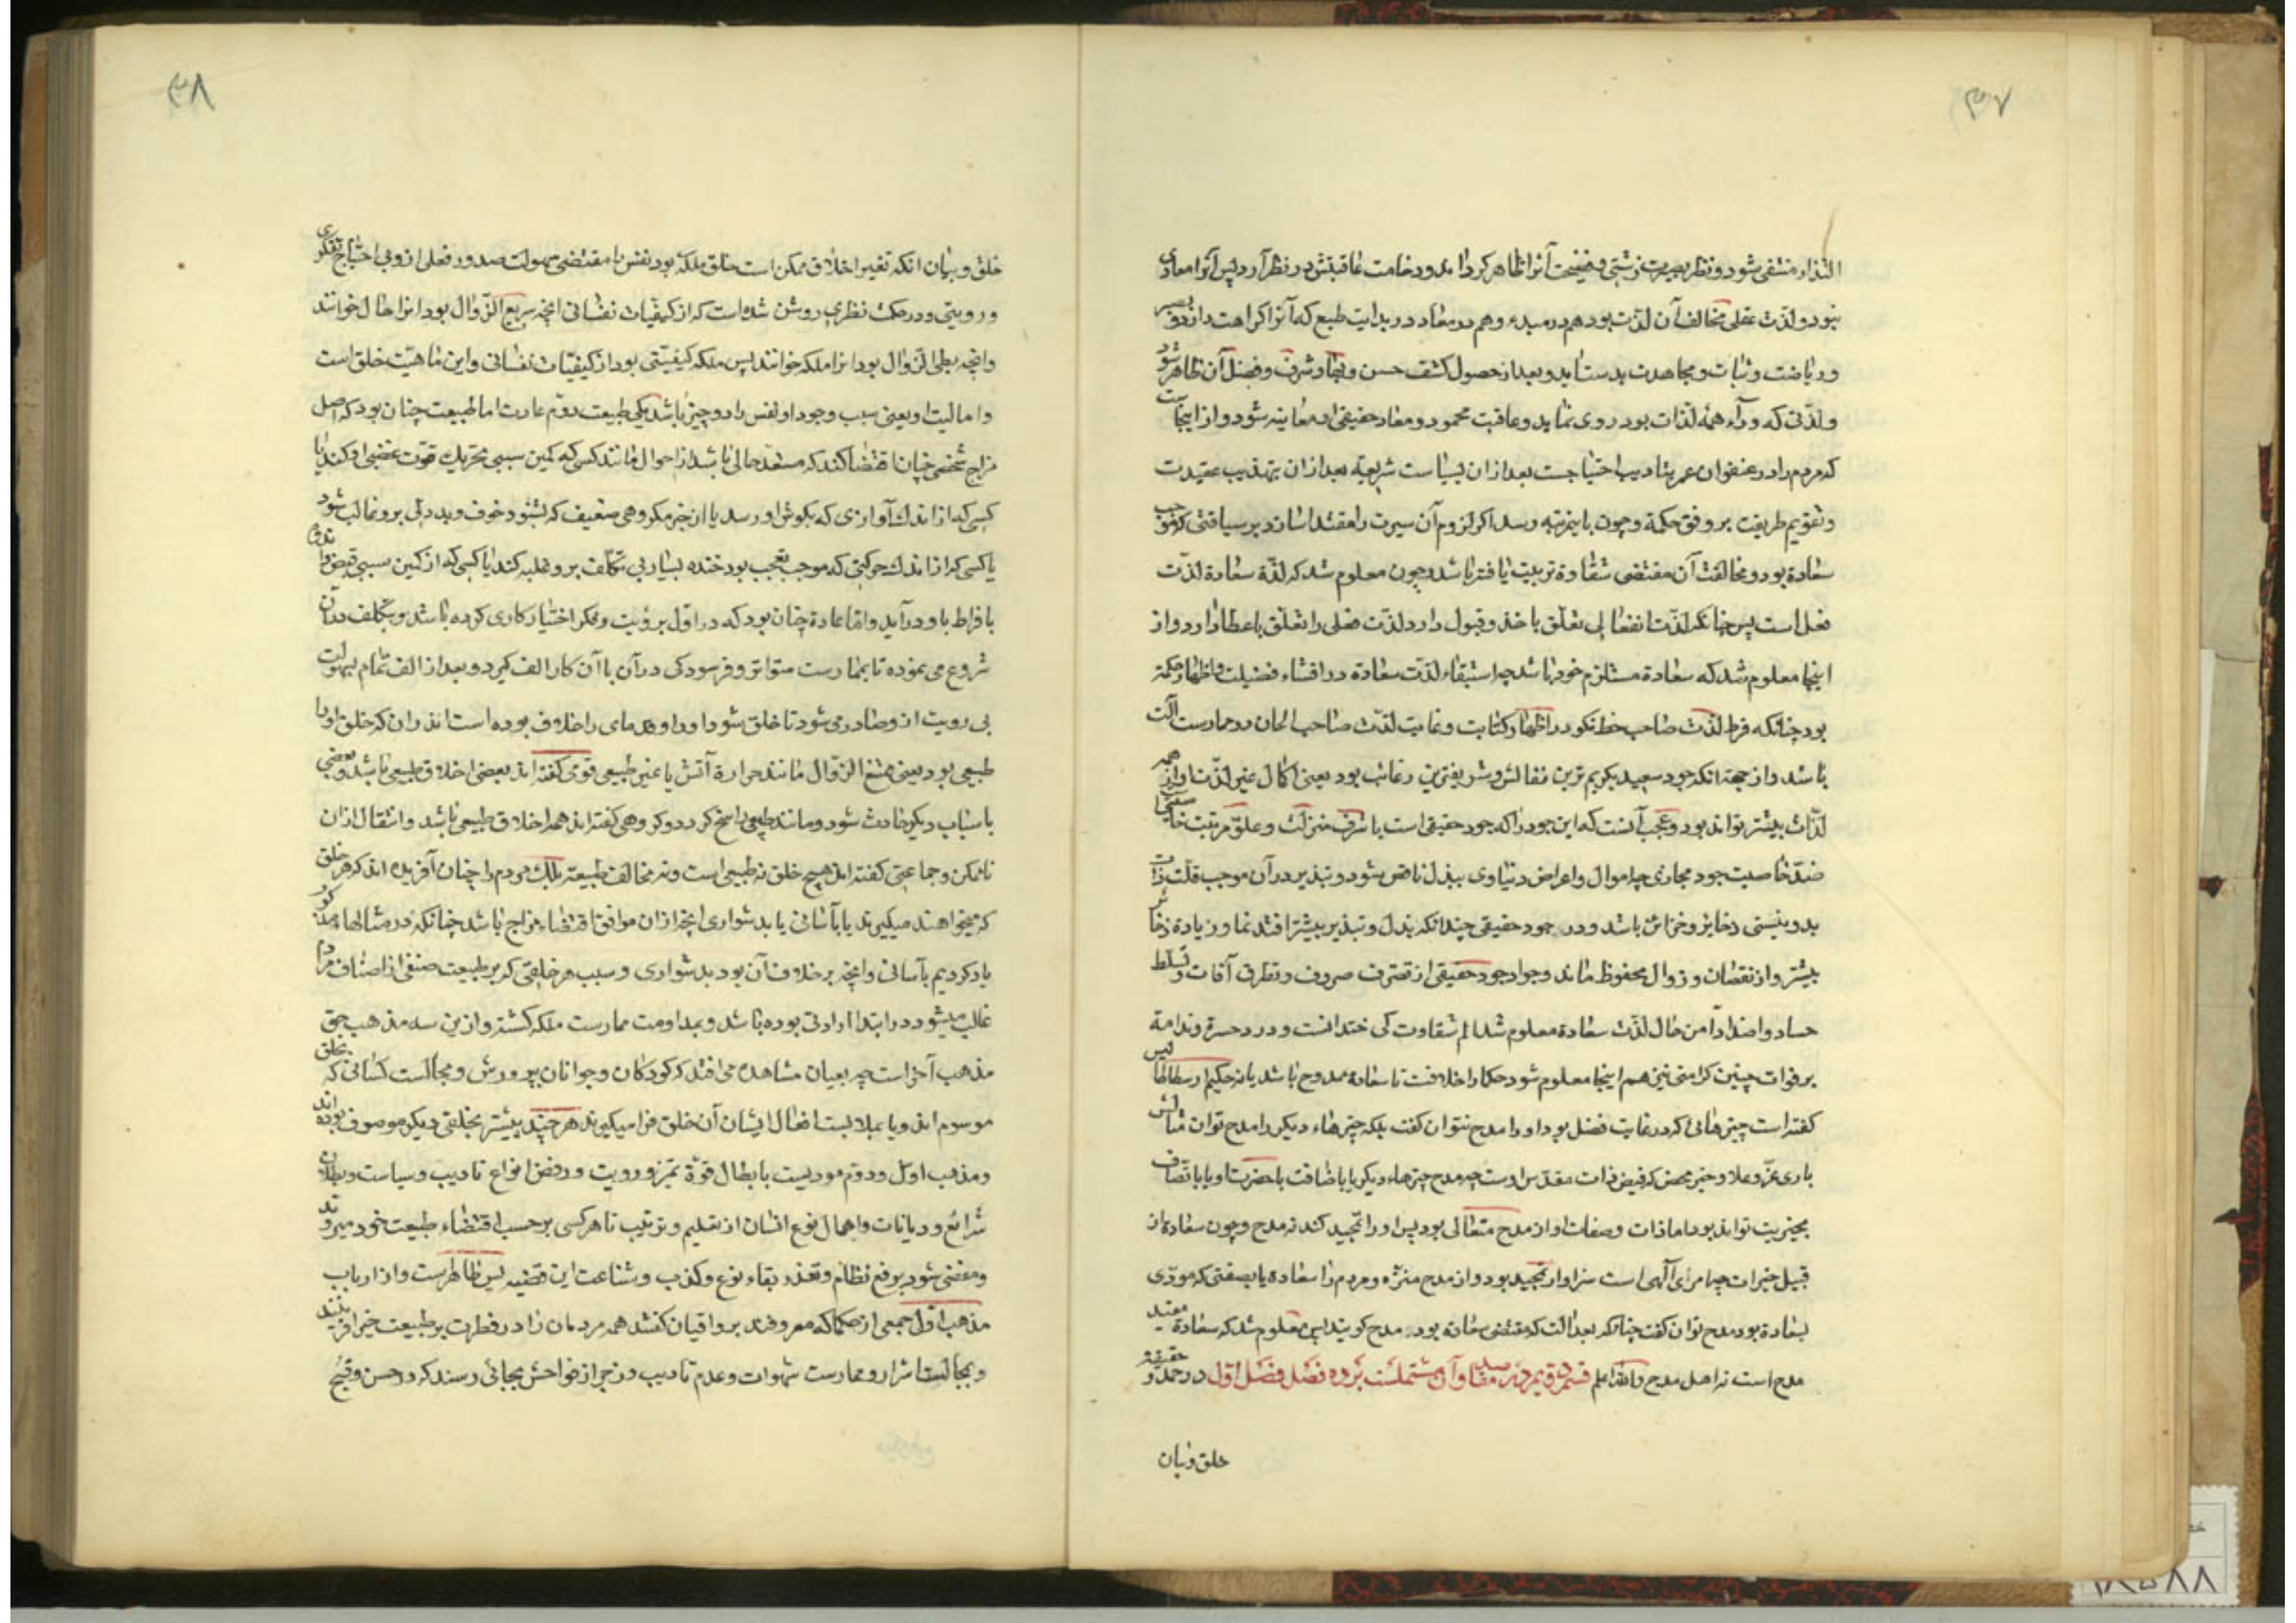 ۳۷
التذاذ منتفی شود و نظر بصیرت زشتی و فضیحت آنرا ظاهر کرداند و وخامت عاقبتش در نظر آرد پس آنرا معادی
نبود و لذت عقلی مخالف آن لذت بود هم در مبدء و هم در معاد در بدایت طبع که آنرا کراهت دارد و بصبر
و ریاضت و ثبات و مجاهدت بدست آید و بعد از حصول کشف حسن و بهاء و شرف و فضل آن ظاهر شود
و لذتی که وراء همه لذات بود روی نماید و عاقبت محمود و معاد حقیقی او معاینه شود و از اینجاست
که مردم را در عنفوان عمر بتادیب احتیاجست بعد از ان بسیاست شریعة بعد از ان بتهذیب عقیدت
و تقویم طریقت بر وفق حکمة و چون باینمرتبه رسد اکر لزوم آن سیرت را معتقد سازد بر سیاقتی که موجب
سعادة بود و مخالفت آن مقتضی شقاوة تربیت یافته باشد و چون معلوم شد که لذة سعادة لذت
فعل است پس چنانکه لذت انفعالی تعلق باخذ و قبول دارد لذت فعلی را تعلق باعطا دارد و از
اینجا معلوم شد که سعادة مستلزم جود باشد چه استیفاء لذت سعادة در افشاء فضیلت و اظهار حکمة
بود چنانکه فرط لذت صاحب خط نکو در اظهار کتابت و غایت لذت صاحب الحان در ممارست آلت
باشد و از جهة انکه جود سعید بکریم ترین نفائس و شریفترین رغائب بود یعنی اکمال غیر لذت او از همه
لذات بیشتر تواند بود و عجب آنست که این جود را که جود حقیقی است با شرف منزلت و علو مرتبت خاصیتی
ضد خاصیت جود مجازی چه اموال و اعراض دنیاوی ببذل ناقص شود و تبذیر در آن موجب قلت ذات
ید و نیستی ذخایر و خزائن باشد و در جود حقیقی چندانکه بذل و تبذیر بیشتر افتد نما و زیادة ذخائر
بیشتر و از نقصان و زوال محفوظ ماند و جواد جود حقیقی از تصرف صروف و تطرق آفات و تسلط
حساد و اضداد آمن حال لذت سعادة معلوم شد الم شقاوت که ضد انست و درد حسرة و ندامة
بر فوات چنین کرامتی نیز هم اینجا معلوم شود حکما را خلافست تا سعادة ممدوح باشد یا نه حکیم ارسطاطالیس
کفته است چیزهائی که در غایت فضل بود او را مدح نتوان کفت بلکه چیزهاء دیکر را مدح توان مثالش
باری عز و علا و خیر محض که فیض ذات مقدس اوست چه مدح چیزهاء دیکر یا باضافت باحضرت او یا باتصاف
بخیریت تواند بود اما ذات و صفات او از مدح متعالی بود پس او را تمجید کنند نه مدح و چون سعادة از
قبیل خیرات چه امری آلهی است سزاوار تمجید بود و از مدح منزه و مردم را سعادة یا بصفتی که مودی
بسعادة بود مدح توان کفت چنانکه بعدالت که مقتضی سعادة بود مدح کویند پس معلوم شد که سعادة مفید
مدح است نه اهل مدح والله اعلم قسم دوم در مقاصد و آن مشتملست بر ده فصل فصل اول در حد و حقیقة
خلق و بیان
۳۸
خلق و بیان انکه تغییر اخلاق ممکن است خلق ملکه بود نفس را مقتضی سهولت صدور فعلی از و بی احتیاج تفکری
و رویتی و در حکمت نظری روشن شده است که از کیفیات نفسانی انچه سریع الزوال بود انرا حال خوانند
و انچه بطی الزوال بود انرا ملکه خوانند پس ملکه کیفیتی بود از کیفیات نفسانی و این ماهیت خلق است
و اما لمیت او یعنی سبب وجود او نفس را دو چیز باشد یکی طبیعت دوم عادت اما طبیعت چنان بود که اصل
مزاج شخصی چنان اقتضا کند که مستعد حالی باشد از احوال مانند کسی که کمین سببی تحریک قوت غضبی او کند یا
کسی که از اندک آوازی که بکوش او رسد یا از خبر مکروهی ضعیف که بشنود خوف و بددلی برو غالب شود
یا کسی که از اندک حرکتی که موجب تعجب بود خنده بسیار بی تکلف برو غلبه کند یا کسی که از کمین سببی قبض و اندوه
بافراط باو درآید و اما عادة چنان بود که در اول برؤیت و فکر اختیار کاری کرده باشد و بتکلف در آن
شروع می نموده تا بممارست متواتر و فرسودکی در آن با آن کار الف کیرد و بعد از الف تمام بسهولت
بی رویت از و صادر می شود تا خلق شود او را و قدمای را خلاف بوده است اندر ان که خلق او را
طبیعی بود یعنی ممتنع الزوال مانند حرارة آتش یا غیر طبیعی قومی کفته اند بعضی اخلاق طبیعی باشد و بعضی
باسباب دیکر حادث شود و مانند طبیعی راسخ کردد و کروهی کفته اند همه اخلاق طبیعی باشد و انتقال از ان
ناممکن و جماعتی کفته اند هیچ خلق نه طبیعی است و نه مخالف طبیعة بلک مردم را چنان آفریده اند که هر خلق
که میخواهند میکیرند یا بآسانی یا بدشواری انچه از ان موافق اقتضاء مزاج باشد چنانکه در مثالها مذکور
یاد کردیم بآسانی و انچه بر خلاف آن بود بدشواری و سبب هر خلقی که بر طبیعت صنفی از اصناف مردم
غالب میشود در ابتدا ارادتی بوده باشد و بمداومت ممارست ملکه کشته و از ین سه مذهب حق
مذهب آخر است چه بعیان مشاهده می افتد که کودکان و جوانان بپرورش و مجالست کسانی که بخلق
موسوم اند و یا بملابست افعال ایشان آن خلق فرا میکیرند هر چند بیشتر بخلقی دیکر موصوف بوده اند
و مذهب اول و دوم مودیست بابطال قوة تمیز و رویت و رفض انواع تادیب و سیاست و بطلان
شرائع و دیانات و اهمال نوع انسان از تعلیم و تربیت تا هر کسی بر حسب اقتضاء طبیعت خود میروند
و مفضی شود برفع نظام و تعذر بقاء نوع و کذب و شناعت این قضیه بس ظاهرست و از ارباب
مذهب اول جمعی از حکما که معروفند برواقیان کفتند همه مردمان را در فطرت بر طبیعت خیر افریند
و بمجالست اشرار و ممارست شهوات و عدم تادیب و زجر از فواحش بجائی رسند که در حسن و قبح